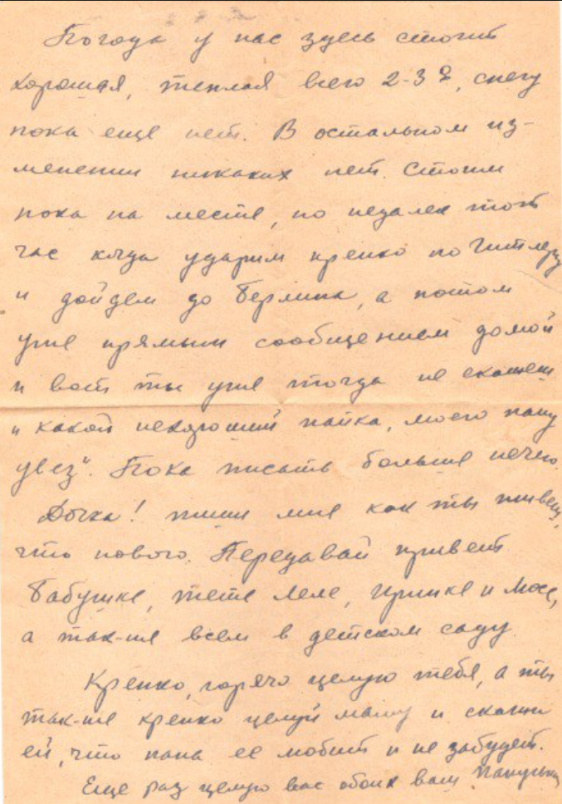 Погода у нас здесь стоит
хорошая, теплая всего 2-3°, снегу
пока еще нет. В остальном из-
менении никаких нет. Стоим
пока на месте, но недалек тот
час когда ударим крепко по Гитлеру
и дойдем до Берлина, а потом
уже прямым сообщением домой
и вот ты уже тогда не скажеш
"какой нехороший папка, моего папу
увез". Пока писать больше нечего.
Дочка! пиши мне как ты живеш,
что нового. Передавай привет
Бабушке, тете Леле, Иринке и
а так-же всем в детском саду.
Крепко, горячо целую тебя, а ты
так-же крепко целуй маму и скажи
ей, что папа ее любит и не забудет.
Еще раз целую вас обоих ваш Папулька